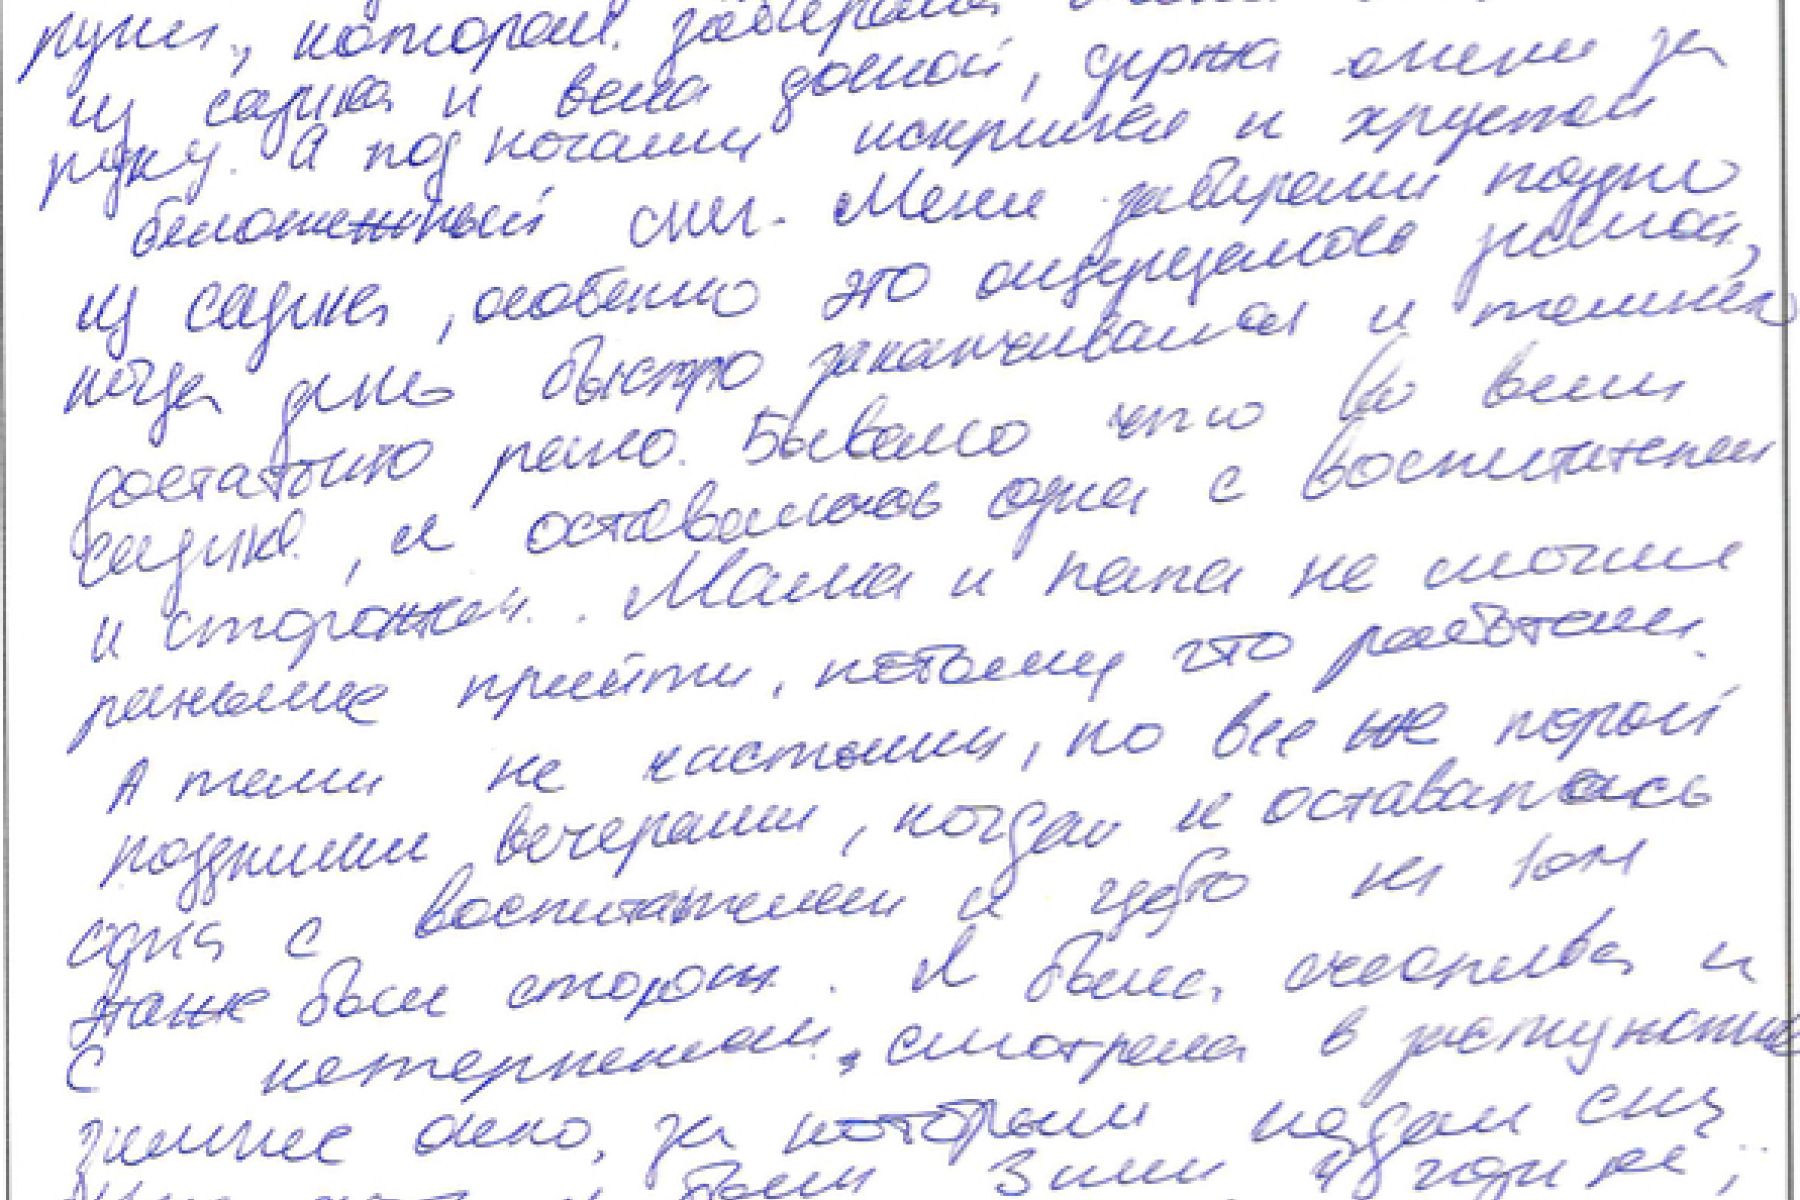 руки, которая забирала меня
из садика и вела домой, держа меня за
руку. А под ногами искрился и хрустел
белоснежный снег. Меня забирали поздно
из садика, особенно это ощущалось зимой,
когда день быстро заканчивался и темнело
достаточно рано. Бывало что во всем
садике, я оставалась одна с воспитателем
и сторожем. Мама и папа не могли
раньше прийти, потому что работали.
А теми не частыми, но все же порой
поздними вечерами, когда я оставалась
одна с воспитателем и где-то на 1ом
этаже был сторож. Я была счастлива и
с нетерпением смотрела в застуженное
зимнее окно, за которым падал снег
было 3 или 4 годика;